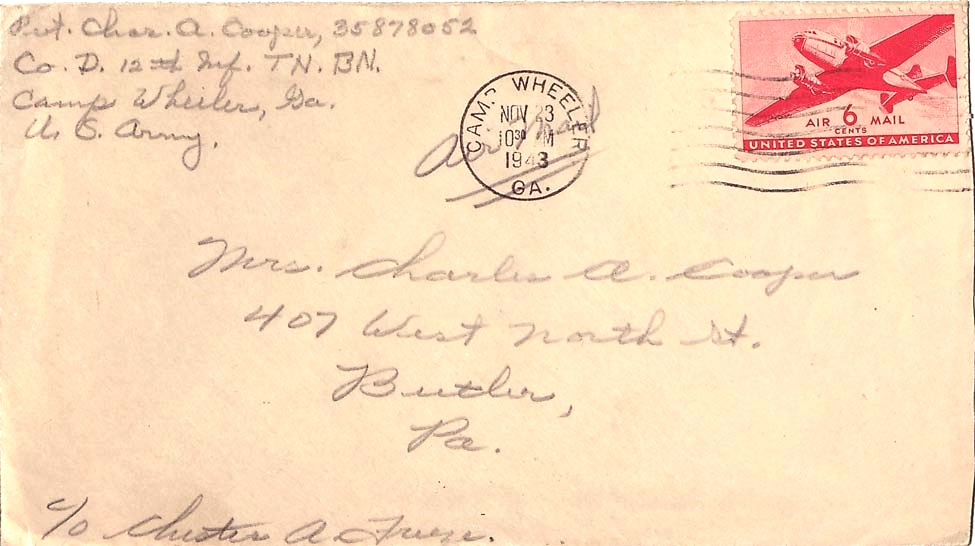 Pvt. Chas. A. Cooper, 35878052
Co. D. 12th Inf. TN. BN.
Camp Wheeler, Ga.
U. S. Army.
Air Mail
CAMP WHEELER
NOV 23
10 30 M
1943
GA.
AIR 6 MAIL
CENTS
UNITED STATES OF AMERICA
Mrs. Charles A. Cooper
407 West North St.
Butler,
Pa.
c/o Chester A